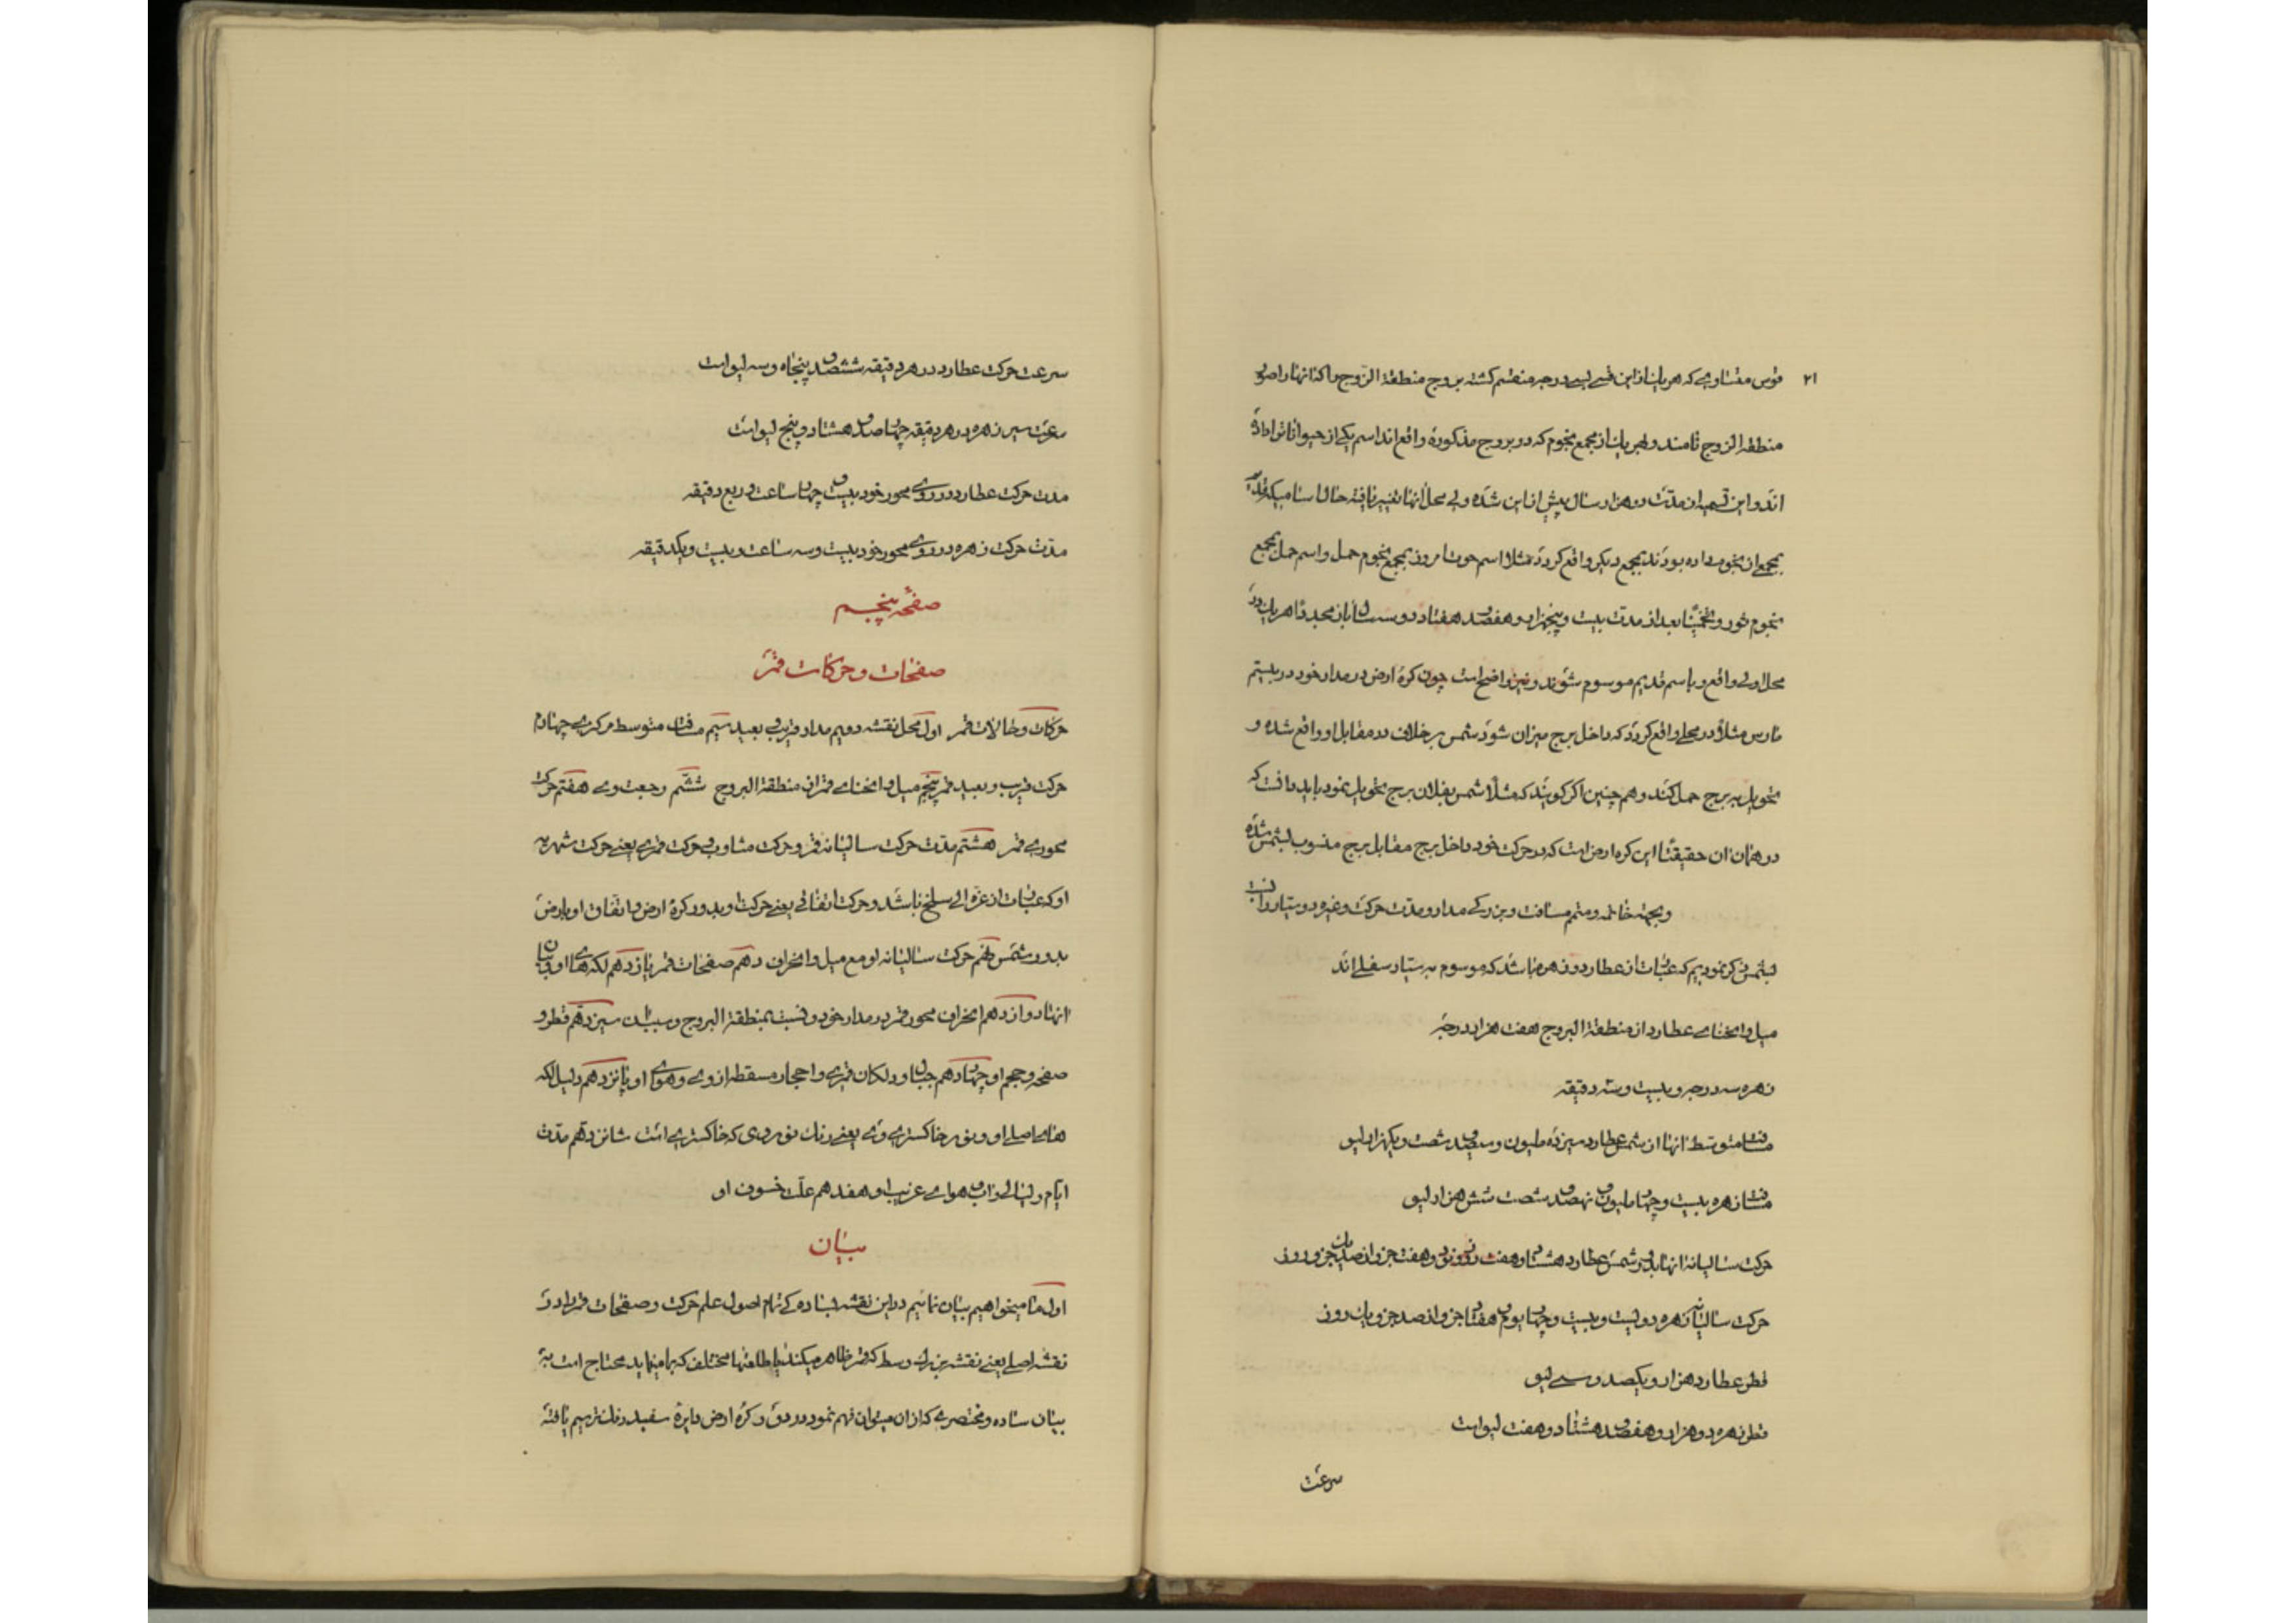 ۲۱ قوس متساوی که هر یک از این قسی بسی درجه منقسم گشته بروج منطقة الزوج و اکذا نهارا صور
منطقه الزوج نامند و لهر یک از مجمع نجوم که در بروج مذکوره واقع اند اسم یکی از حیوانات داده
اند و این تسمیه ان مدت دو هزار سال پیش از این شده ولی محل انها تغییر یافته حالا اسامی که
بمجمع ان نجوم داده بودند بمجمع دیگر واقع کردد مثلا اسم حوت امروز بمجمع نجوم حمل و اسم حمل بمجمع
نجوم ثور و بعد از مدت بیست و پنجهزار و هفصد هفتاد و دو سال باز مجددا هر یک در
محل اولی واقع و باسم قدیم موسوم شوند و نیز واضح است چون کره ارض در مدار خود در بیستم
مارس مثلا در محلی واقع کردد که داخل برج میزان شود شمس بر خلاف در مقابل او واقع شده و
تحویل به برج حمل کند و هم چنین اگر کویند که مثلا شمس بفلان برج تحویل نمود باید دانست که
در همان ان حقیقتا این کره ارض است که در حرکت خود داخل برج مقابل برج منسوب بشمس شده
و بجهة خاتمه و متمم مسافت و بزرکی مدار و مدت حرکت و غیره دو سیاره
بشمس ذکر نمودیم که عبارت از عطارد و زهره باشد که موسوم به سیار سفلی اند
میل و انحنای عطارد از منطقة البروج هفت هزار درجه
زهره سه درجه و بیست و سه دقیقه
مسافت متوسط انها از شمس عطارد سیزده ملیون و سیصد شصت و یکهزار لیو
مسافت زهره بیست و چهار ملیون و نهصد و شصت شش هزار لیو
حرکت سالیانه انها بدور شمس عطارد هشتاد و هفت روز و نود و هفت جزو از صد جزو روز
حرکت سالیانه زهره دویست و بیست و چهار یوم و هفتاد جزو از صد جزو یک روز
قطر عطارد هزار و یکصد و سی لیو
قطر زهره دو هزار و هفصد و هشتاد و هفت لیو است
سرعت
سرعت حرکت عطارد در هر دقیقه ششصد و پنجاه و سه لیو است
سرعت سیر زهره در هر دقیقه چهار صد و هشتاد و پنج لیو است
مدت حرکت عطارد در روی محور خود بیست و چهار ساعت و ربع دقیقه
مدت حرکت زهره در روی محور خود بیست و سه ساعت و بیست و یکدقیقه
صفحه پنجم
صفحات و حرکات قمر
حرکات و حالات قمر اول محل نقشه دویم مدار قریب و بعید سیم مسافت متوسط مرکزی چهارم
حرکت قریب و بعید قمر پنجم میل و انحنای قمر از منطقة البروج ششم رجعت وی هفتم حرکت
محوری قمر هشتم مدت حرکت سالیانه قمر و حرکت متناوب و حرکت قمری یعنی حرکت شهریه
او که عبارت از غره الی سلخ باشد و حرکت اتفاقی یعنی حرکت او بدور کره ارض و اتفاق او بارض
بدور شمس نهم حرکت سالیانه او مع میل و انحراف دهم صفحات قمر یازدهم لکه های او و بیان
انها دوازدهم انحراف محور قمر در مدار خود و نسبت بمنطقة البروج و سببان سیزدهم قطر و
صفحه و حجم او چهاردهم جبال و دلکان قمری و احجار مسقطه از وی و هوای او پانزدهم دلیل لکه
های اصلی او و نور خاکستری وی یعنی رنگ نور مردی که خاکستری است شانزدهم مدت
ایام و لیالی و اب و هوای غریب او هفدهم علت خسوف او
بیان
اول ما میخواهیم بیان نمائیم در این نقشه ساده که تمام اصول علم حرکت و صفحات قمر را در
نقشه اصلی یعنی نقشه بزرک وسط که قمر ظاهر میکند با طلعتها مختلف که بما مینماید محتاج است به
بیان ساده و مختصری که از ان میتوان فهم نمود در دو کره ارض دایره سفید رنک ترسیم یافته